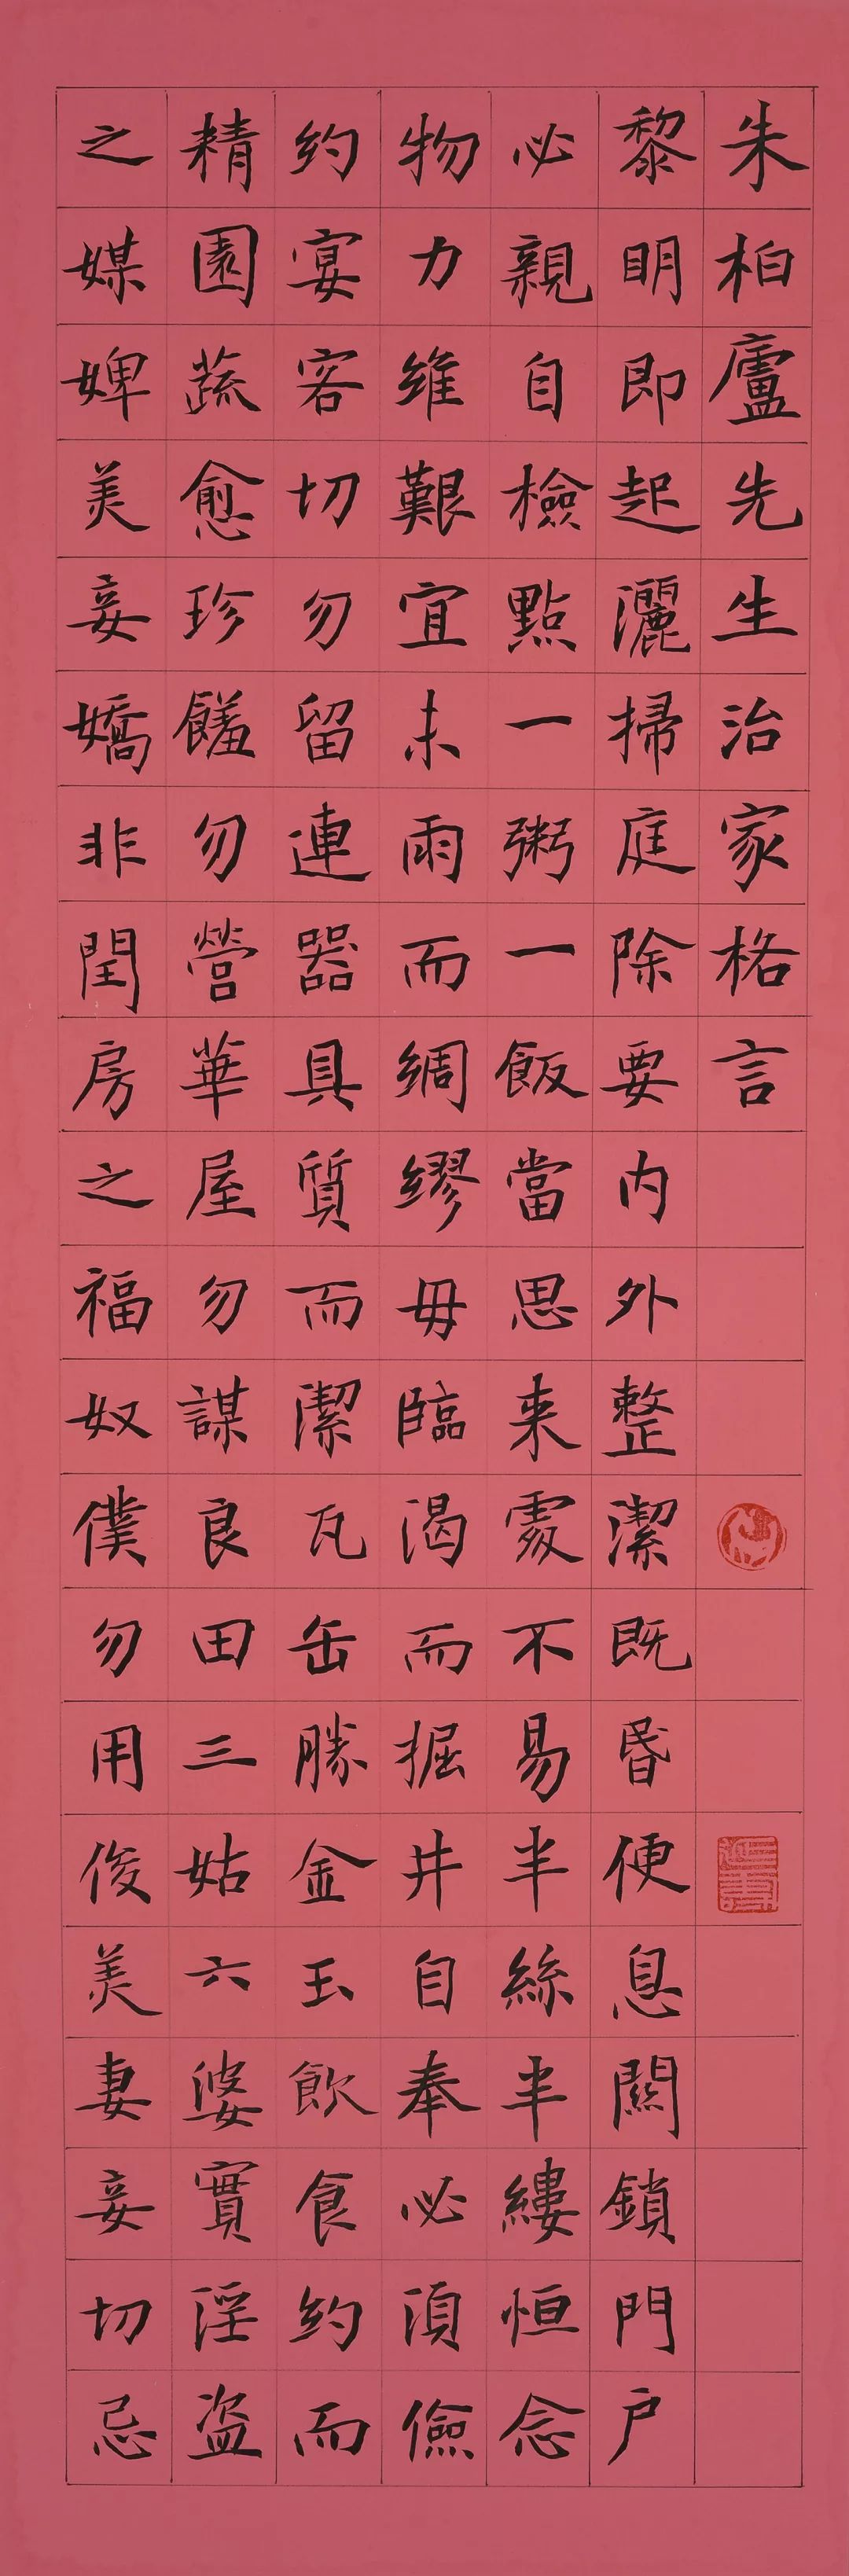 朱柏廬先生治家格言
黎明即起灑掃庭除要内外整潔既昏便息關鎖門户
必親自檢點一粥一飯當思来處不易半絲半縷恒念
物力維艱宜未雨而綢繆毋臨渴而掘井自奉必須儉
約宴客切勿留連器具質而潔瓦缶勝金玉飲食約而
精園蔬愈珍饈勿營華屋勿謀良田三姑六婆實淫盗
之媒婢美妾嬌非閨房之福奴僕勿用俊美妻妾切忌